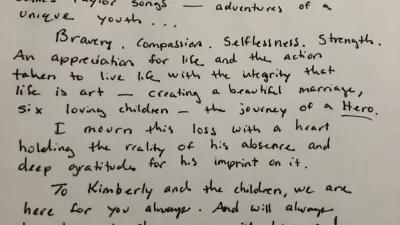 James Taylor songs — adventures of a
unique youth...
Bravery. Compassion. Selflessness. Strength.
An appreciation for life and the action
taken to live life with the integrity that
life is art — creating a beautiful marriage,
six loving children — the journey of a Hero.
I mourn this loss with a heart
holding the reality of his absence and
deep gratitude for his imprint on it.
To Kimberly and the children, we are
here for you always. And will always